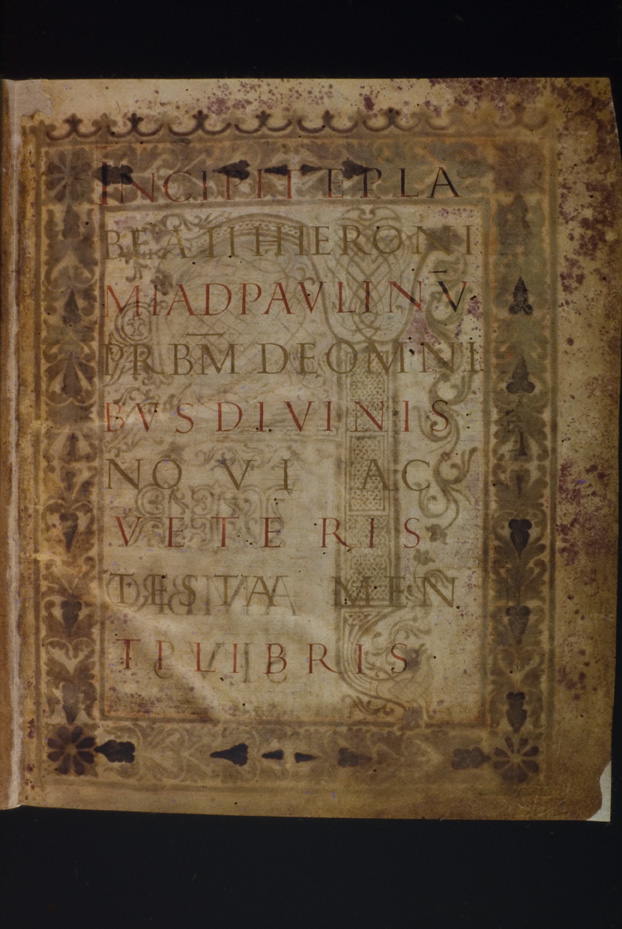 INCIPIT EPLA
BEATI HIERONI
MI AD PAVLINV̄
PRBM̄ DE OMNI
BVS DIVINIS
NOVI AC
VETERIS
TESTAMEN
TI LIBRIS